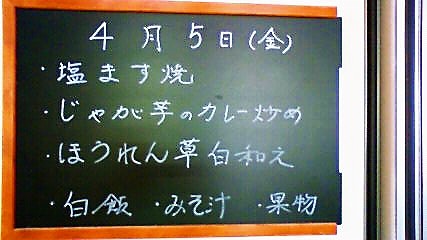 4月5日(金)
・塩ます焼
・じゃが芋のカレー炒め
・ほうれん草白和え
・白飯 ・みそ汁 ・果物